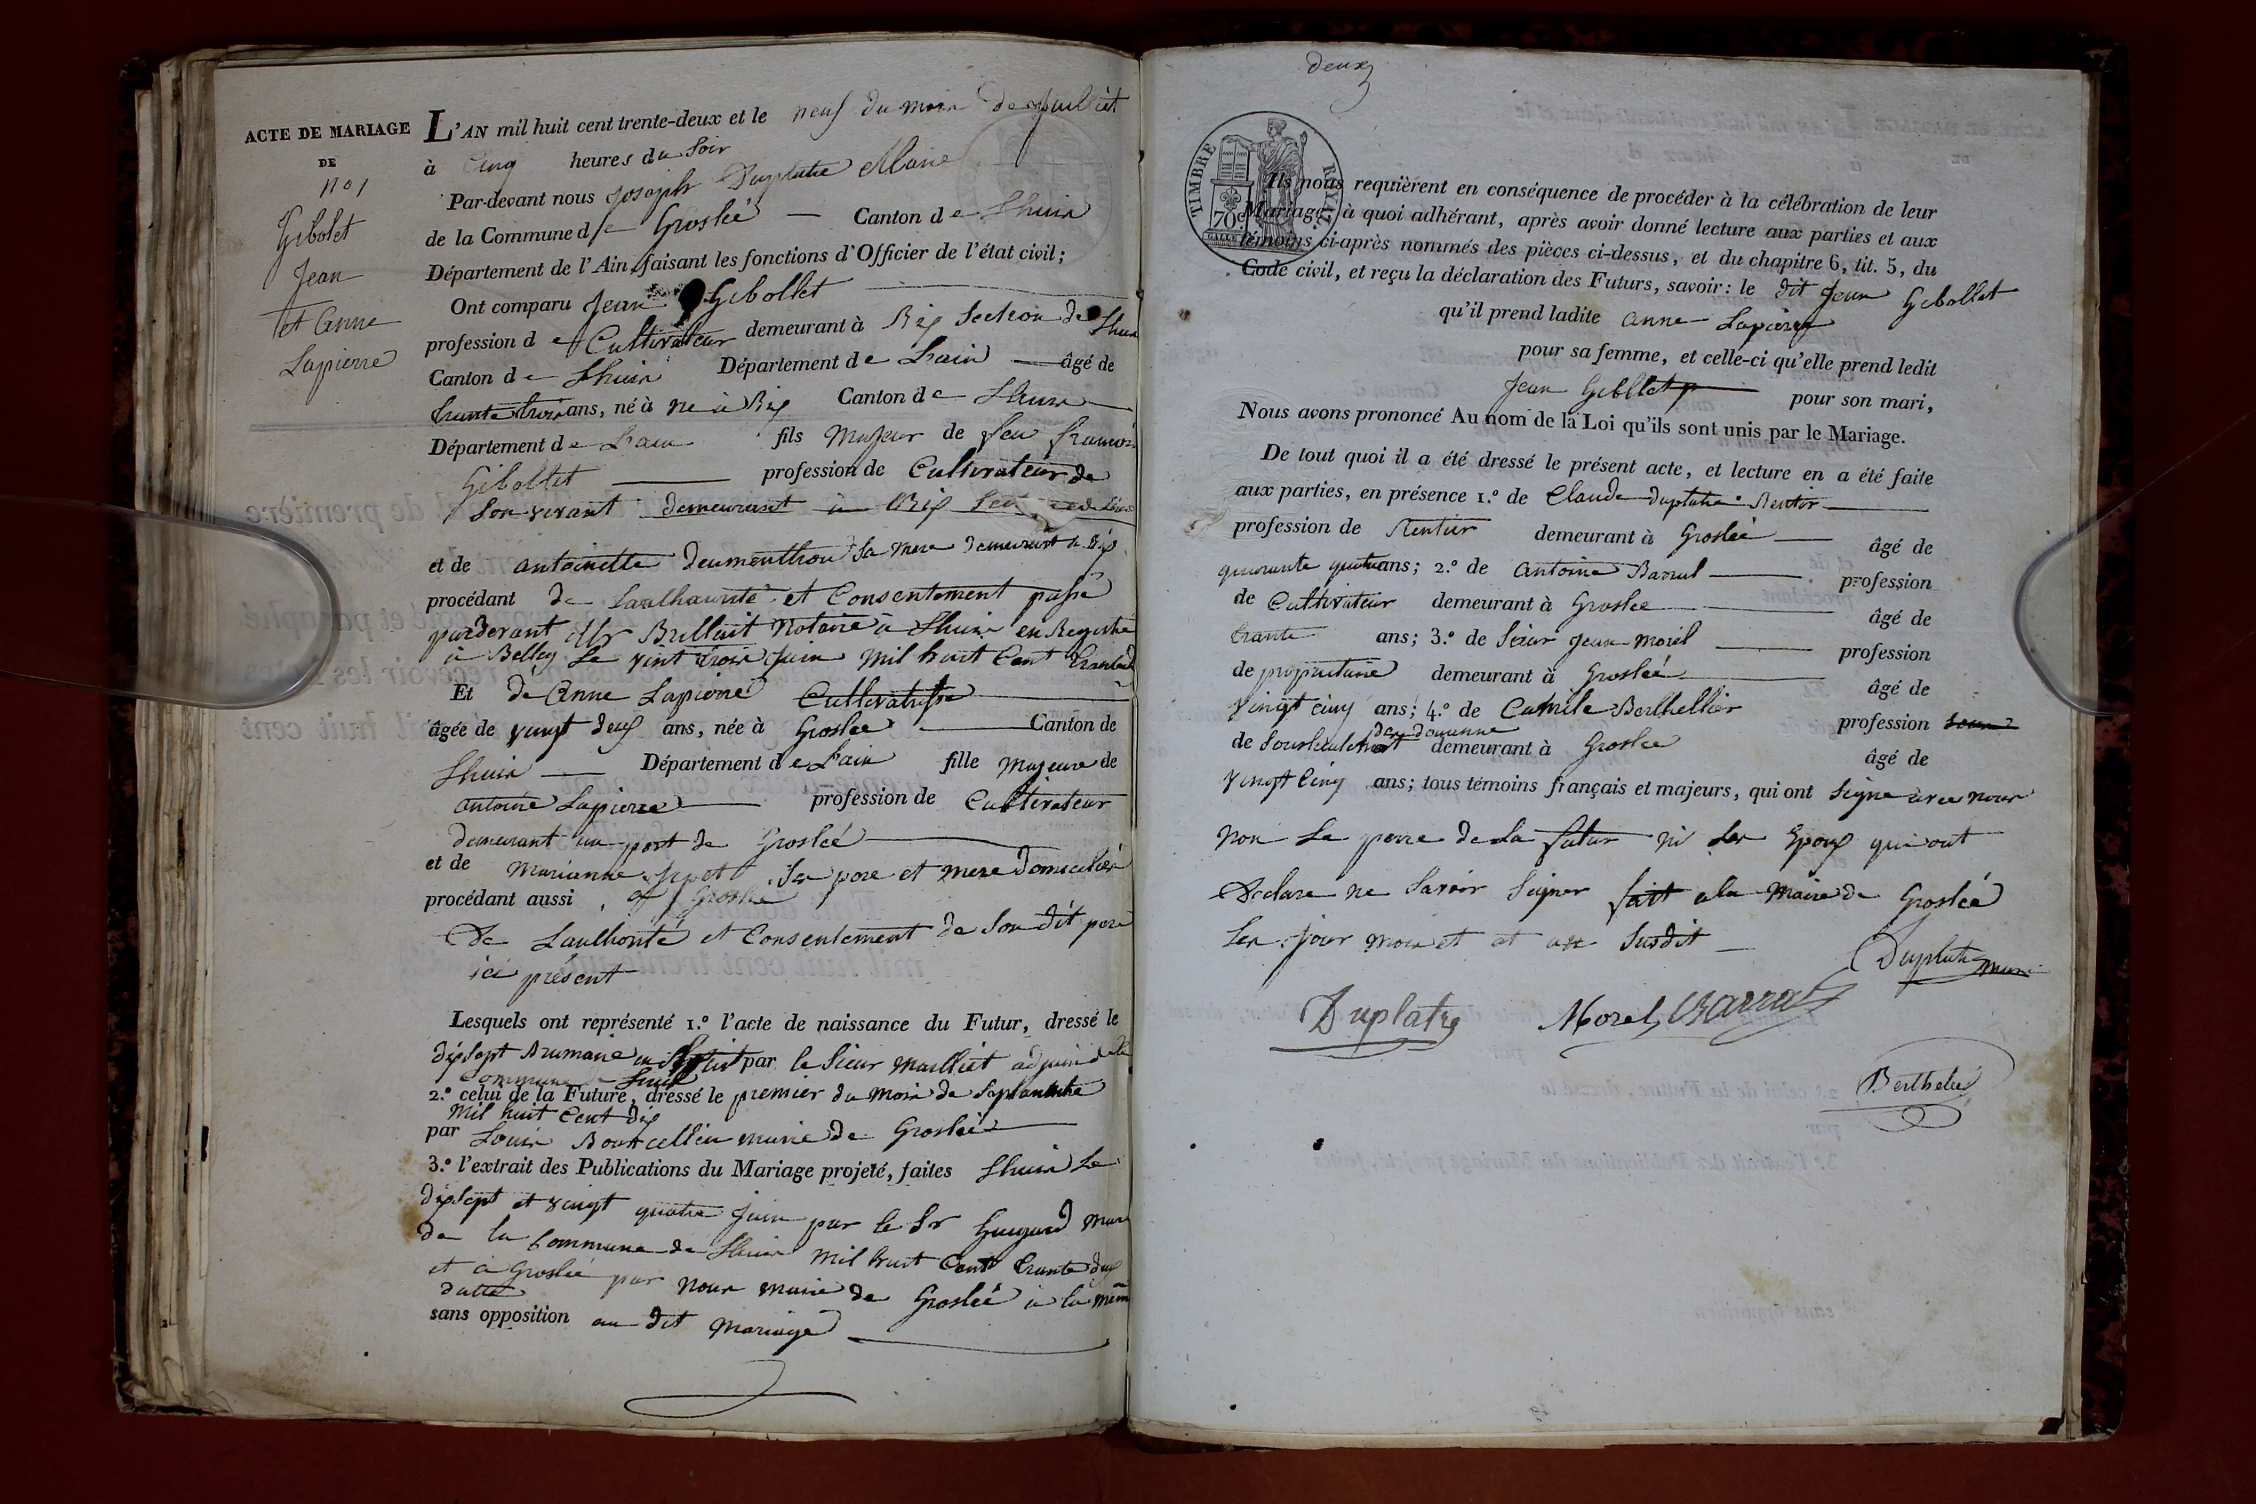 ACTE DE MARIAGE
DE
N° 1
Gibolet
Jean
et Anne
Lapierre
L'AN mil huit cent trente-deux et le neuf du mois de Juilliet
à Cinq heures du Soir
Par-devant nous Josoeph Duplatre Maire
de la Commune de Groslée Canton de Lhuis
Département de l'Ain, faisant les fonctions d'Officier de l'état civil;
Ont comparu Jean Gibollet
profession de Cultivateur demeurant à Rix Section de Lhuis
Canton de Lhuis Département de Lain âgé de
trante trois ans, né à ne à Rix Canton de Lhuis
Département de Lain fils Majeur de feu francois
Gibollet profession de Cultivateur de
Son vivant demeurant à Rix
et de antoinette deumenthou Sa mere demeurant à Rix
procédant de Laulhaurité et Consentement passé
pardevant Mr Brillait Notaire à Lhuis en Registré
à Belley Le vint trois Juin Mil huit Cent
Et de Anne Lapierre Cultivatrisse
âgée de vingt deux ans, née à Groslee Canton de
Lhuis Département de Lain fille Majeure de
antoine Lapierre profession de Cultivateur
demeurant au port de Groslée
et de Marianne Ser pere et mere domiciliés
procédant aussi a Groslee
De Laulhorité et Consentement de Son dit pere
ici présent
Lesquels ont représenté 1.º l'acte de naissance du Futur, dressé le
dixsept Brumaire an Sept par le Sieur Mailliet adjoin de la
Commune de Lhuis
2.º celui de la Future, dressé le premier du Mois de Saptambre
Mil huit Cent dix
par Louis Bouvcellin maire de Groslée
3.º l'extrait des Publications du Mariage projeté, faites Lhuis Le
dixsept et vaingt quatre Juin par le Sr Guigard Maire
de la Commune de Lhuis Mil huit Cent trante deux
et a Groslée par Nous maire de Groslée à la mêm
datte
sans opposition au dit Mariage
deux
TIMBRE ROYAL
70 c
Ils nous requièrent en conséquence de procéder à la célébration de leur
Mariage, à quoi adhérant, après avoir donné lecture aux parties et aux
témoins ci-après nommés des pièces ci-dessus, et du chapitre 6, tit. 5, du
Code civil, et reçu la déclaration des Futurs, savoir: le dit Jean Gibollet
qu'il prend ladite Anne Lapierre
pour sa femme, et celle-ci qu'elle prend ledit
Jean Gibllet pour son mari,
Nous avons prononcé Au nom de la Loi qu'ils sont unis par le Mariage.
De tout quoi il a été dressé le présent acte, et lecture en a été faite
aux parties, en présence 1.º de Claude duplatre Rentier
profession de Rentier demeurant à Groslée âgé de
quarante quatre ans; 2.º de Antoine Barral profession
de Cultivateur demeurant à Groslee âgé de
trante ans; 3.º de Sieur Jean Morel profession
de propriétaire demeurant à Groslée âgé de
Vingt cinq ans; 4.º de Camile Berthellier profession
des douanne
de Souslieutenant demeurant à Groslee âgé de
Vingt Cinq ans; tous témoins français et majeurs, qui ont Signe avec nous
Non Le perre de La futur ni Les Epoux qui ont
Déclare ne Savoir Signer fait a la Mairie de Groslée
Les Jour Mois et et an Susdit
Duplatre Maire
Duplatre Morel Barral
Berthelier